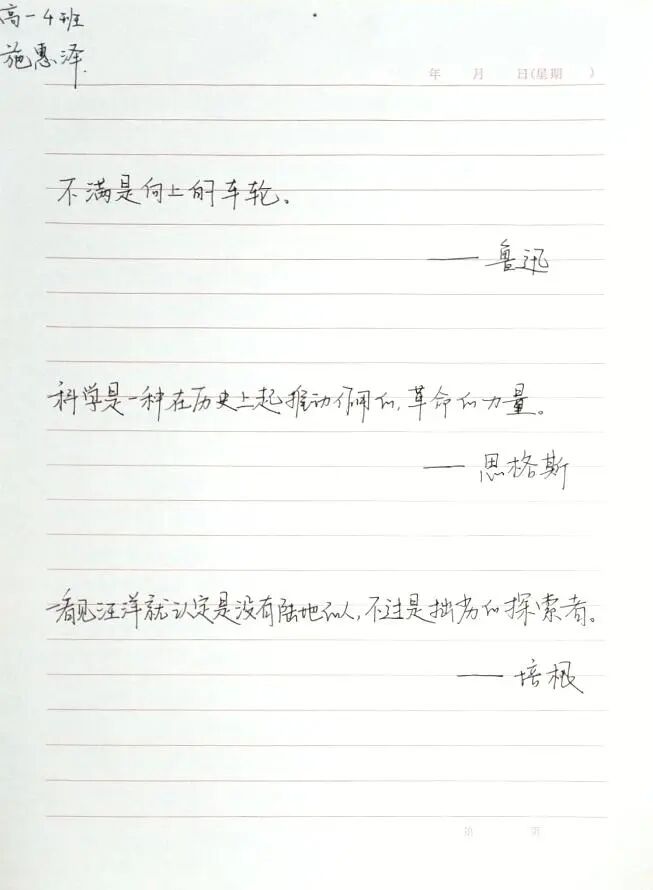 高一4班
施惠泽
年 月 日(星期 )
不满是向上的车轮。
——鲁迅
科学是一种在历史上起推动作用的,革命的力量。
——恩格斯
看见汪洋就认定是没有陆地的人,不过是拙劣的探索者。
——培根
第 页